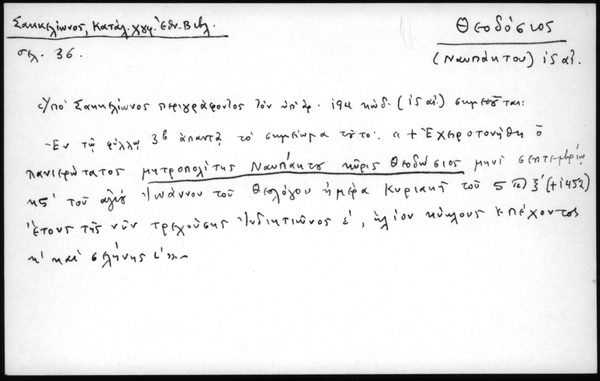 Σακκελίωνος, Κατάλ. χγφ. Ἐθν. Βιβλ.
σελ. 36.
Θεοδόσιος
(Ναυπάκτου) ις αἰ.
Ὑπὸ Σακκελίωνος περιγράφοντος τὸν ὑπ' ἀρ. 194 κώδ. (ις αἰ.) σημειοῦται:
Ἐν τῷ φύλλῳ 3β ἀπαντᾷ τὸ σημείωμα τοῦτο· "+ Ἐχειροτονήθη ὁ
πανιερώτατος μητροπολίτης Ναυπάκτου κῦρις Θεοδώσιος μηνὶ σεπτεμβρίῳ
κς' τοῦ ἁγίου Ἰωάννου τοῦ Θεολόγου ἡμέρα Κυριακῇ τοῦ
ἔτους τῆς νῦν τρεχούσης Ἰνδικτιῶνος ἡλίου κύκλους ἐπέχοντος
κ' καὶ σελήνης